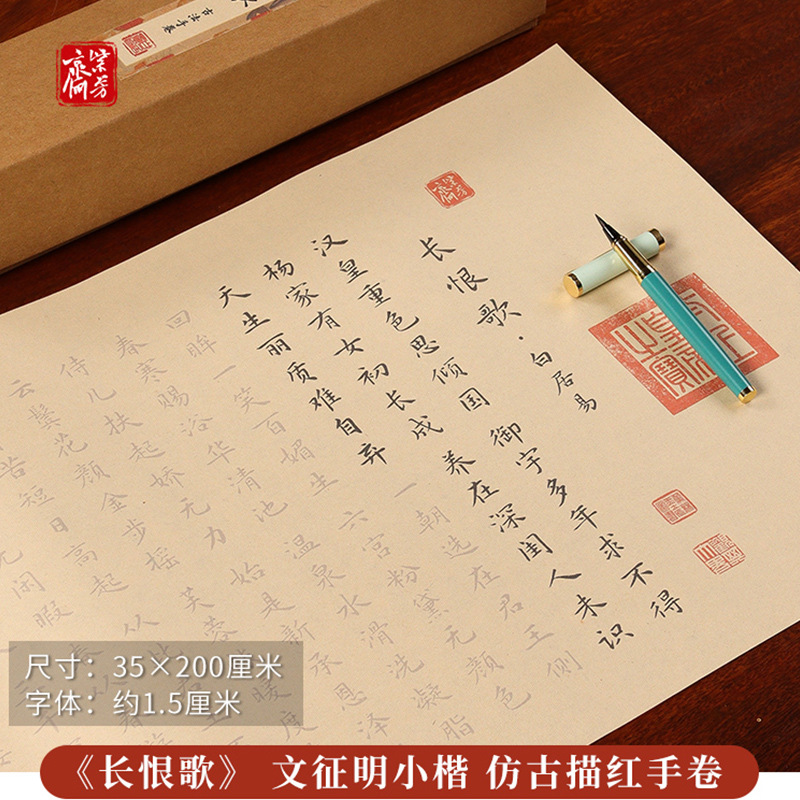 古法手卷
长恨歌·白居易
汉皇重色思倾国 御宇多年求不得
杨家有女初长成 养在深闺人未识
天生丽质难自弃 一朝选在君王侧
回眸一笑百媚生 六宫粉黛无颜色
春寒赐浴华清池 温泉水滑洗凝脂
侍儿扶起娇无力 始是新承恩泽
云鬓花颜金步摇 芙蓉 暖度
苦短日高起 从此
无闲暇
尺寸：35×200厘米
字体：约1.5厘米
《长恨歌》 文征明小楷 仿古描红手卷